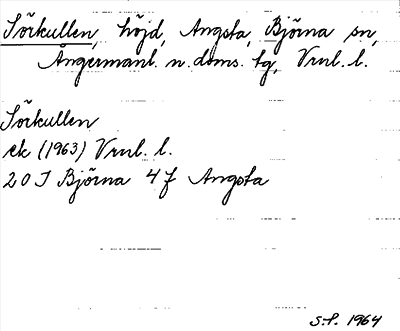 Sörkullen, höjd, Angsta, Björna sn,
Ångermanl. n. doms. tg, Vrnl. l.
Sörkullen
ek (1963) Vrnl. l.
20 I Björna 4 f Angsta
S.P. 1964